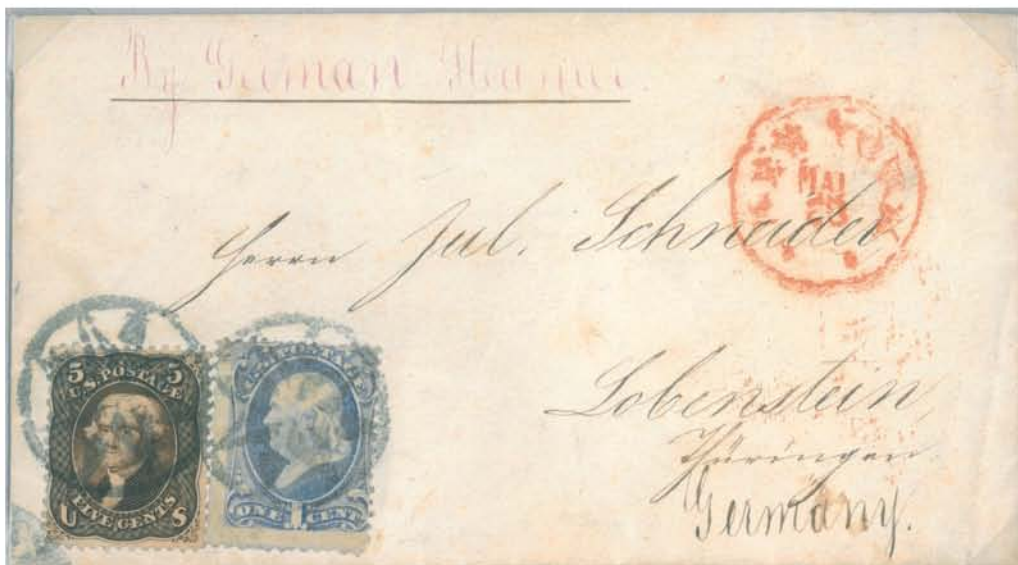 By German Steamer.
MAI
Herrn Jul. Schneider
Lobenstein
Thüringen
Germany.
5 5
U.S. POSTAGE
FIVE CENTS
U S
U.S. POSTAGE
ONE 1 CENT